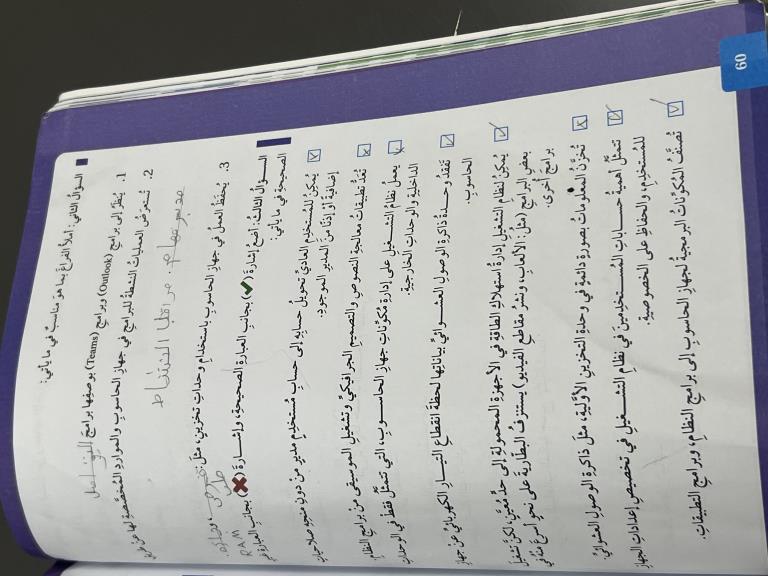 السؤال الثاني: أملأ الفراغ بما هو مناسب في ما يأتي:
1. يُنظَرُ إلى برامج (Outlook) وبرامج (Teams) بوصفها برامج التواصل
2. تُستعرَضُ العمليات النشطة للبرامج في جهاز الحاسوب والموارد المُخصَّصة لها عن طريق
مدير مهام. مراقب النشاط
3. يُحفَظُ العمل في جهاز الحاسوب باستخدام وحدات تخزين، مثل:
RAM
السؤال الثالث: أضع إشارة (✔) بجانب العبارة الصحيحة، وإشارة (✖) بجانب العبارة غير
الصحيحة في ما يأتي:
يُمكِنُ للمُستخدِم العادي تحويل حسابه إلى حساب مُستخدِم مدير من دون منحه صلاحيات
إضافية أو إذنًا من المدير الموجود.
تُعَدُّ تطبيقات معالجة النصوص والتصميم الجرافيكي وتشغيل الموسيقى من برامج النظام.
يعمل نظام التشغيل على إدارة مُكوِّنات جهاز الحاسوب، التي تتمثَّل فقط في الوحدات
الداخلية والوحدات الخارجية.
تفقد وحدة ذاكرة الوصول العشوائي بياناتها لحظة انقطاع التيار الكهربائي عن جهاز
الحاسوب.
يُمكِنُ لنظام التشغيل إدارة استهلاك الطاقة في الأجهزة المحمولة إلى حدٍّ مُعيَّن، لكنَّ تشغيل
بعض البرامج (مثل: الألعاب، ونشر مقاطع الفيديو) يستنزف البطارية على نحوٍ أسرع منه في
برامج أُخرى.
تُخزَّنُ المعلومات بصورة دائمة في وحدة التخزين الأوَّلية، مثل ذاكرة الوصول العشوائي.
تتمثَّل أهمية حسابات المُستخدِمين في نظام التشغيل في تخصيص إعدادات الجهاز
للمُستخدِم، والحفاظ على الخصوصية.
تُصنَّفُ المُكوِّنات البرمجية لجهاز الحاسوب إلى برامج النظام، وبرامج التطبيقات.
60